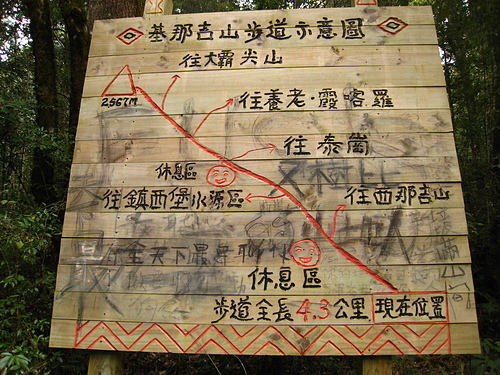 基那吉山步道示意圖
往大霸尖山
2567M
往養老·霞喀羅
往泰崗
休息區
往鎮西堡水源區
往西那吉山
休息區
步道全長4.3公里
現在位置